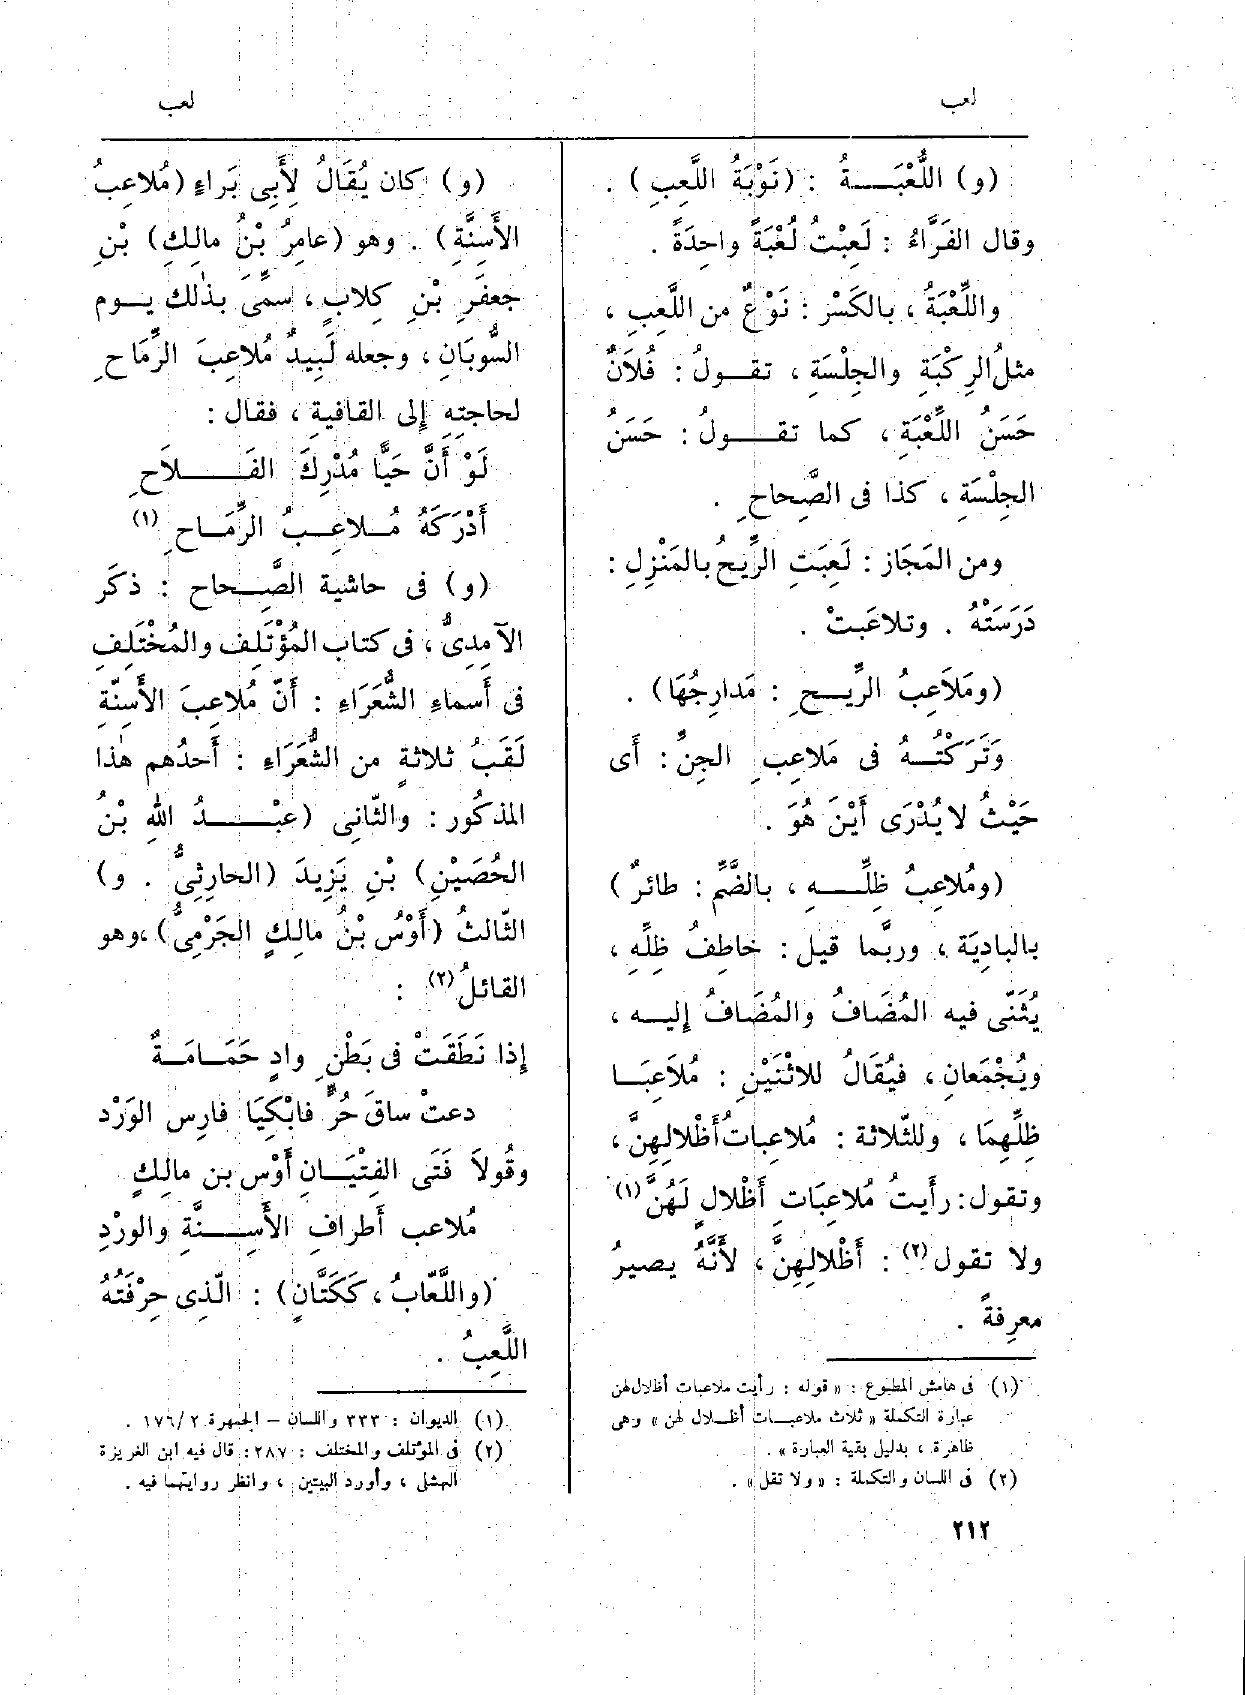 لعب
لعب
(و) اللُّعْبَـــةُ : (نَوْبَةُ اللَّعِبِ) .
وقال الفَرَّاءُ : لَعِبْتُ لُعْبَةً واحِدَةً .
واللِّعْبَةُ ، بالكَسْرِ : نَوْعٌ من اللَّعِبِ ،
مثلُ الرِكْبَةِ والجِلْسَةِ ، تقــولُ : فُلَانٌ
حَسَنُ اللِّعْبَةِ ، كما تقــولُ : حَسَنُ
الجِلْسَةِ ، كذا فى الصّحاحِ .
ومن المَجَاز : لَعِبَتِ الرِّيحُ بالمَنْزِلِ :
دَرَسَتْهُ . وتلاعَبتْ .
(ومَلَاعِبُ الرِّيــحِ : مَدارِجُهَا) .
وَتَرَكْتُــهُ فى مَلَاعِبِ الجِنِّ : أَى
حَيْثُ لا يُدْرَى أَيْنَ هُوَ .
(ومُلاعِبُ ظِلِّــهِ ، بالضَّمِّ : طائرٌ)
بالبادِيَة ، وربَّما قيل : خاطِفُ ظِلِّهِ ،
يُثَنَّى فيه المُضَافُ والمُضَافُ إليــه ،
ويُجْمَعانِ ، فيُقَالُ للاثْنَيْنِ : مُلَاعِبَــا
ظِلِّهِمَا ، وللثّلاثة : مُلاعِباتُ أَظْلالِهِنَّ ،
وتقول : رأَيتُ مُلاعِبَاتِ أَظْلالٍ لَهُنَّ (١)
ولا تقول (٢) : أَظْلالِهِنَّ ، لأَنَّهُ يصيرُ
معرِفةً .
(١) فى هامش المطبوع : « قوله : رأيت ملاعبات أظلال لهن
عبارة التكملة « ثلاث ملاعبــات أظــلال لهن » وهى
ظاهرة ، بدليل بقية العبارة » .
(٢) فى اللسان والتكملة : « ولا تقل » .
(و) كان يُقَالُ لِأَبِى بَراءٍ (مُلاعِبُ
الأَسِنَّةِ) . وهو (عامِرُ بْنُ مالِكِ) بْنِ
جعفَرِ بْنِ كِلابٍ ، سمِّىَ بذٰلك يــوم
السُّوبَانِ ، وجعله لَبِيدٌ مُلاعِبَ الرِّمَاحِ
لحاجتِهِ إِلى القافِيةِ ، فقال :
لَوْ أَنَّ حَيًّا مُدْرِكَ الفَــــلاَحِ
أَدْرَكَهُ مُــلاعِــبُ الرِّمَــاحِ (١)
(و) فى حاشية الصّــحاح : ذكَر
الآمدِىُّ ، فى كتاب المُؤْتَلِف والمُخْتَلِفِ
فى أَسماءِ الشُّعَرَاءِ : أَنّ مُلاعِبَ الأَسِنّةِ
لَقَبُ ثلاثةٍ من الشُّعَرَاءِ : أَحدُهم هٰذا
المذكُور : والثّانِى (عبْــــدُ اللهِ بْنُ
الحُصَيْنِ) بْنِ يَزِيدَ (الحارِثِىُّ . و)
الثّالثُ (أَوْسُ بْنُ مالِكٍ الجَرْمِىُّ) ، وهو
القائلُ (٢) :
إِذا نَطَقَتْ فى بَطْنِ وادٍ حَمَــامَــةٌ
دعتْ ساقَ حُرٍّ فابْكِيَا فارِس الوَرْد
وقُولاَ فَتَى الفِتْيَــانِ أَوْس بن مالِكٍ
مُلاعب أَطرافِ الأَسِــنَّةِ والورْدِ
(واللَّعّابُ ، كَكَتَّانٍ) : الّذى حِرْفَتُهُ
اللَّعِبُ .
(١) الديوان : ٣٣٣ واللسان – الجمهرة ٢/١٧٦ .
(٢) فى المؤتلف والمختلف : ٢٨٧ : قال فيه ابن الغريزة
النهشلى ، وأورد البيتين ، وانظر روايتهما فيه .
٢١٢